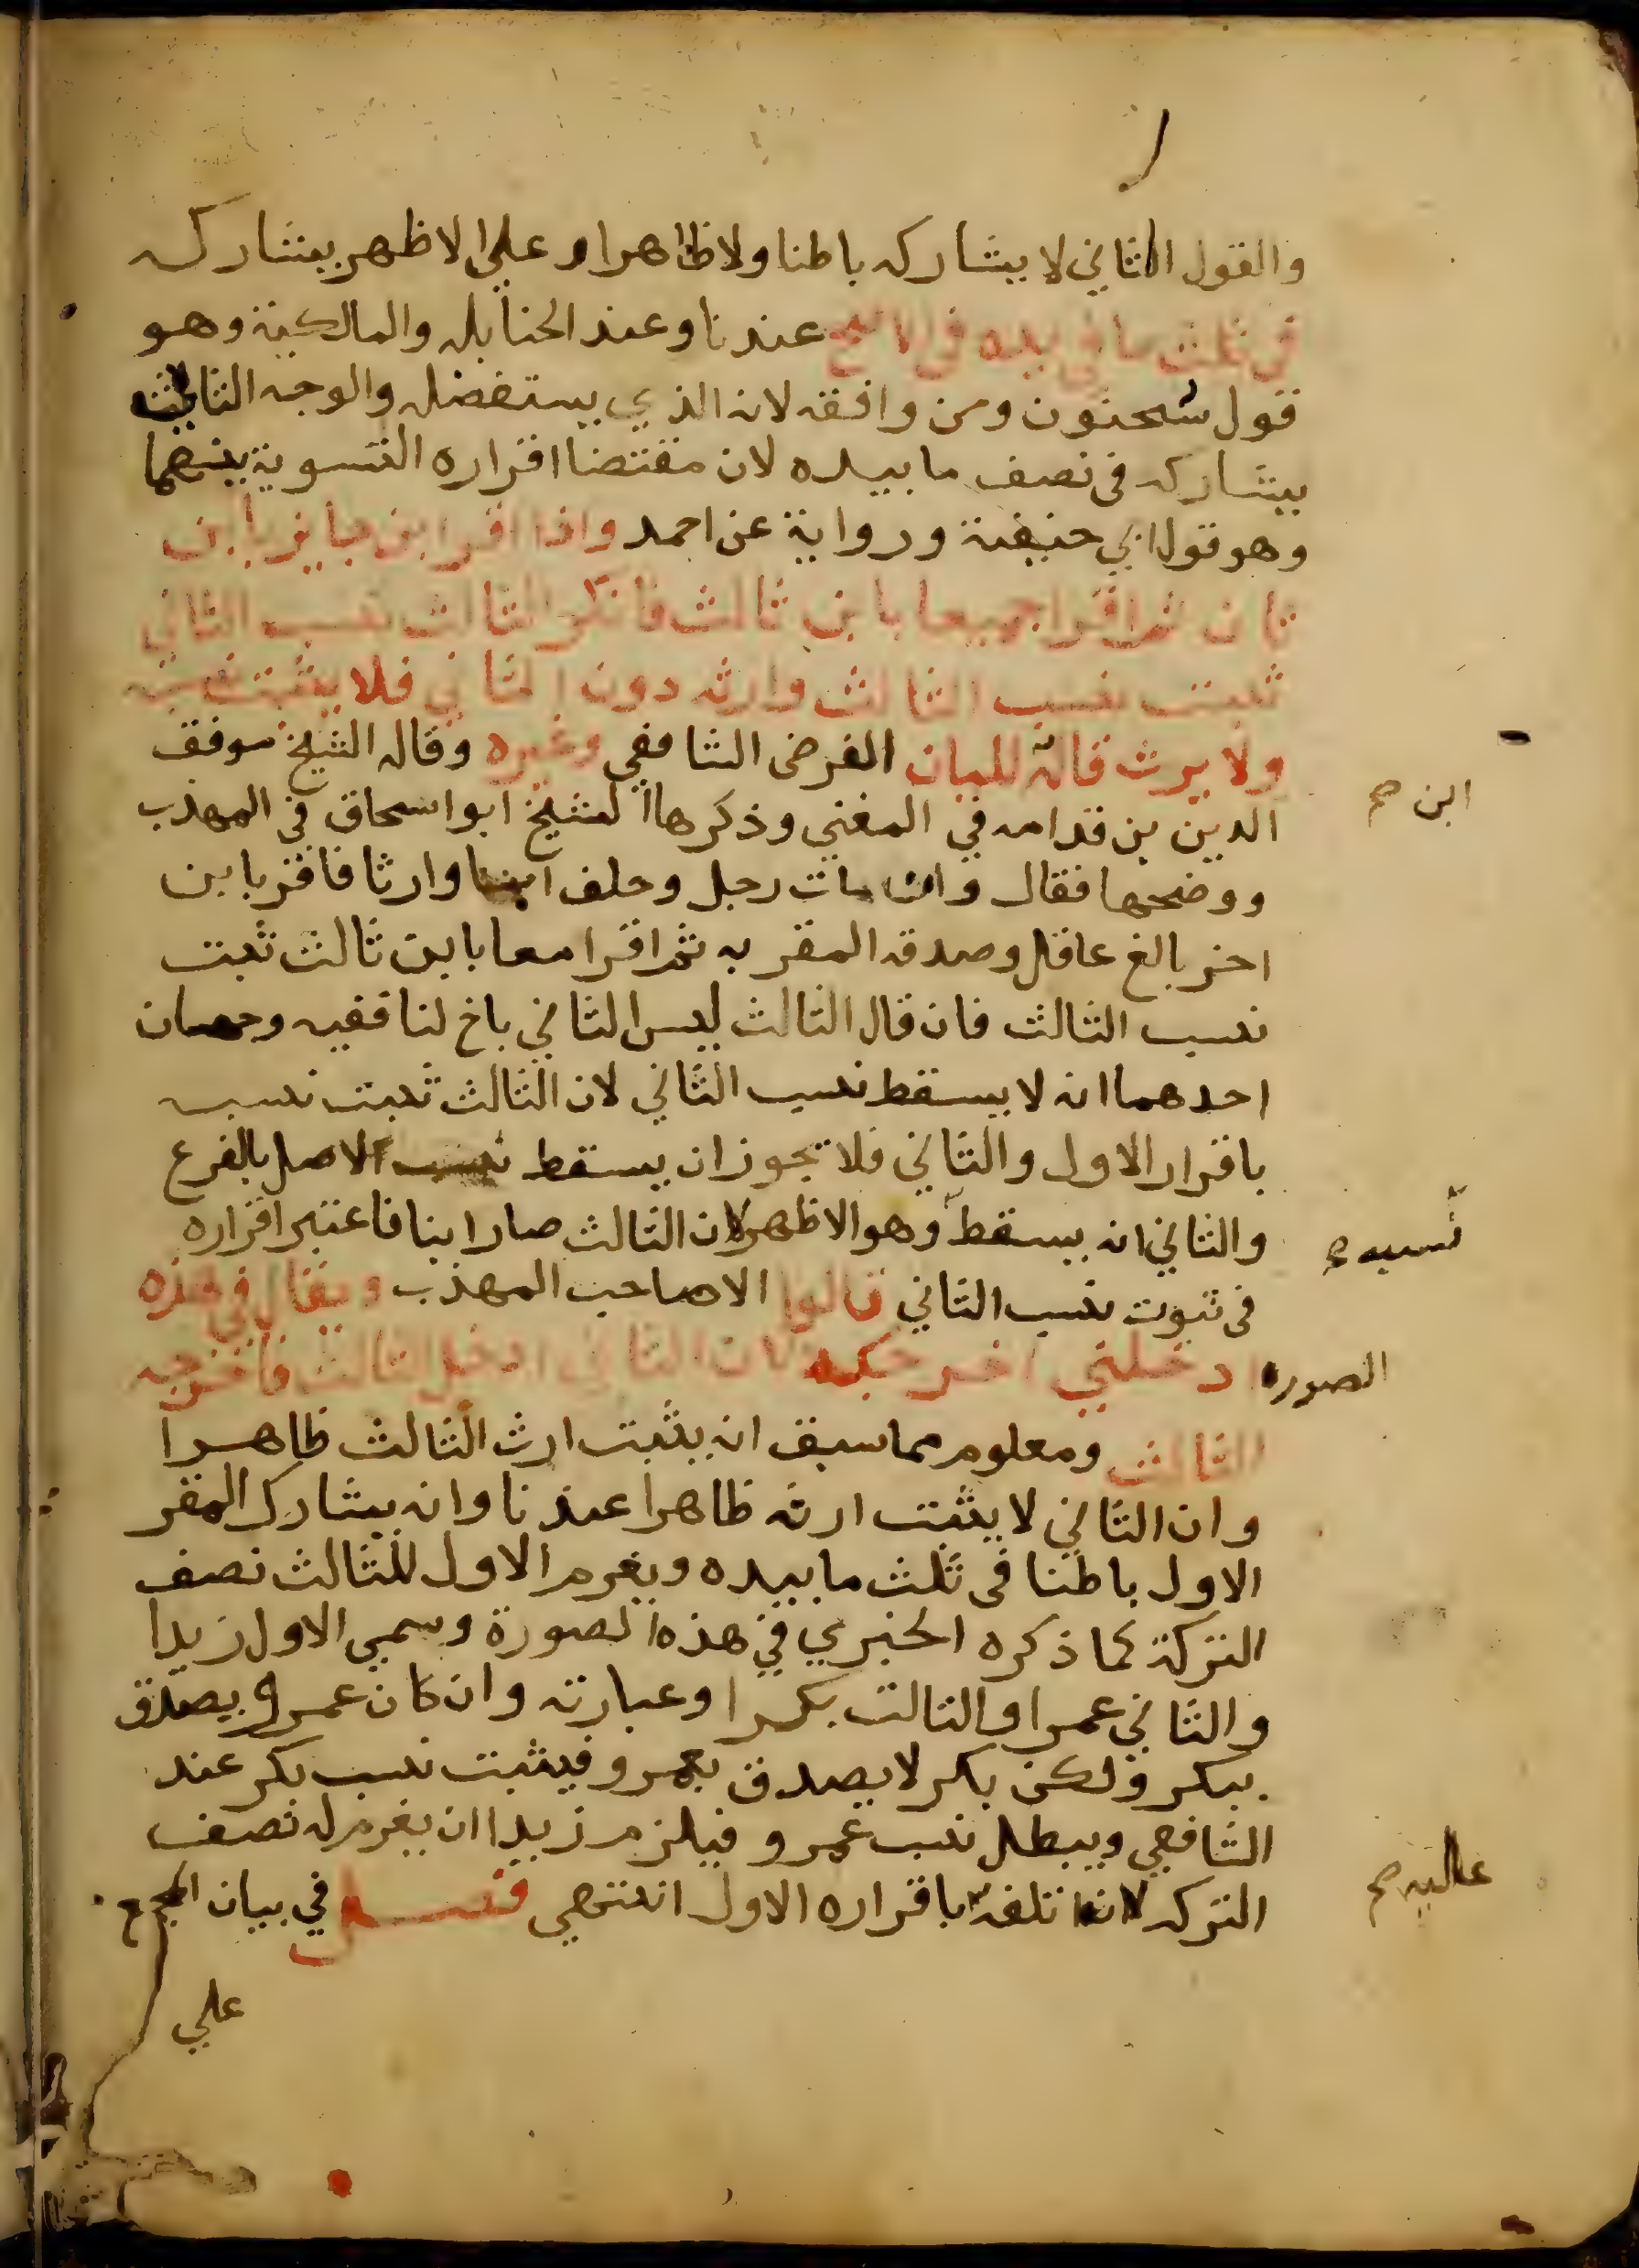 والقول الثاني لا يشاركه باطنا ولا ظاهرا وعلي الاظهر يشاركه
في ثلث ما في يده في الاصح عندنا وعند الحنابله والمالكية وهو
قول سحنون ومن وافقه لانه الذي يستفضله والوجه الثالث
يشاركه في نصف ما بيده لان مقتضا اقراره التسوية بينهما
وهو قول ابي حنيفة ورواية عن احمد واذا اقر ابن حايز بابن
ثان ثم اقرا جميعا بابن ثالث فانكر الثالث نسب الثاني
ثبت نسب الثالث وارثه دون الثاني فلا يثبت نسبه
ولا يرث قاله اللبان الفرضي الشافعي وغيره وقاله الشيخ موفق
الدين بن قدامه في المغني وذكرها الشيخ ابو اسحاق في المهذب
ابن صح
ووضحها فقال وان مات رجل وخلف ابنا وارثا فاقر بابن
اخر بالغ عاقل وصدقه المقر به ثم اقرا معا بابن ثالث ثبت
نسب الثالث فان قال الثالث ليس الثاني باخ لنا ففيه وجهان
احدهما انه لا يسقط نسب الثاني لان الثالث ثبت نسبه
باقرار الاول والثاني فلا يجوز ان يسقط نسب الاصل بالفرع
والثاني انه يسقط وهو الاظهر لان الثالث صار ابنا فاعتبر اقراره
نسبه صح
في ثبوت نسب الثاني قالوا الا صاحب المهذب ويقال في هذه
الصوره ادخلني اخرجك لان الثاني ادخل الثالث فاخرجه
الثالث ومعلوم مما سبق انه يثبت ارث الثالث ظاهرا
وان الثاني لا يثبت ارثه ظاهرا عندنا وانه يشارك المقر
الاول باطنا في ثلث ما بيده ويغرم الاول للثالث نصف
التركة كما ذكره الخبري في هذه الصورة وسمي الاول زيدا
والثاني عمرا والثالث بكرا وعبارته وان كان عمرو يصدق
ببكر ولكن بكر لا يصدق بعمرو فيثبت نسب بكر عند
الشافعي ويبطل نسب عمرو فيلزم زيدا ان يغرم له نصف
التركه لانه اتلفه باقراره الاول انتهي فصل في بيان الجمع
عاليه صح
علي